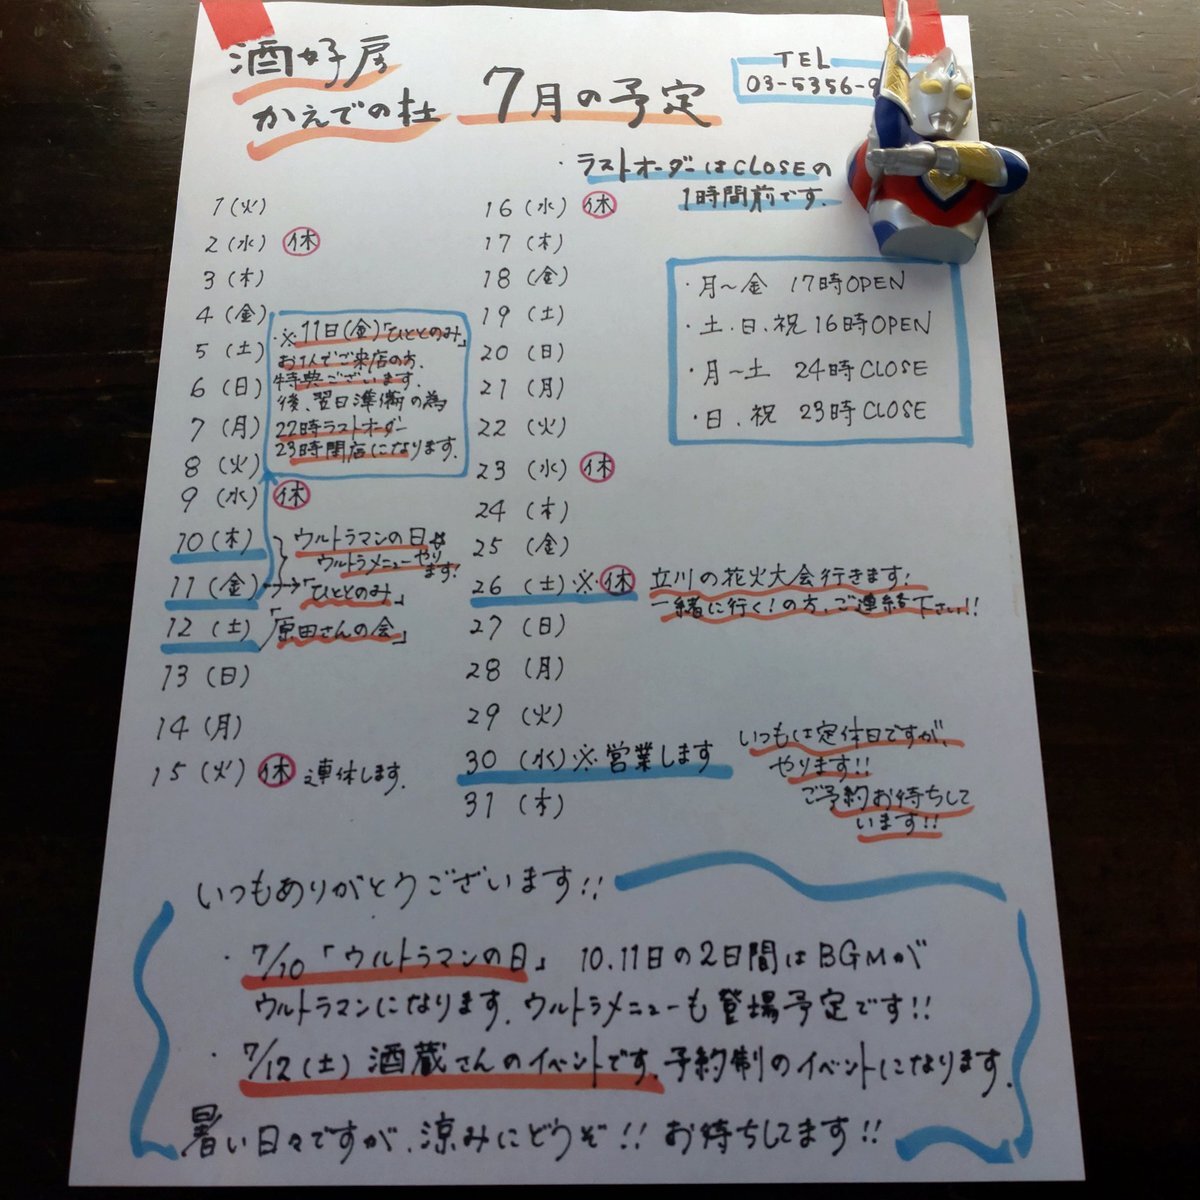 酒好房
かえでの杜
7月の予定
TEL
03-5356-9
・ラストオーダーはCLOSEの
1時間前です.
1(火)
2(水) 休
3(木)
4(金)
5(土)
6(日)
7(月)
8(火)
9(水) 休
10(木)
11(金)
12(土)
13(日)
14(月)
15(火) 休 連休します.
※11日(金)「ひととのみ」
お1人でご来店の方、
特典ございます.
後、翌日準備の為
22時ラストオーダー
23時閉店になります.
ウルトラマンの日
ウルトラメニューやり
ます!
→「ひととのみ」
「原田さんの会」
16(水) 休
17(木)
18(金)
19(土)
20(日)
21(月)
22(火)
23(水) 休
24(木)
25(金)
26(土)※休
27(日)
28(月)
29(火)
30(水)※営業します
31(木)
・月〜金 17時OPEN
・土.日.祝 16時OPEN
・月〜土 24時CLOSE
・日.祝 23時CLOSE
立川の花火大会行きます!
一緒に行く!の方、ご連絡下さい!!
いつもは定休日ですが、
やります!!
ご予約お待ちして
います!!
いつもありがとうございます!!
・7/10「ウルトラマンの日」 10.11日の2日間はBGMが
ウルトラマンになります.ウルトラメニューも登場予定です!!
・7/12(土) 酒蔵さんのイベントです.予約制のイベントになります.
暑い日々ですが、涼みにどうぞ!! お待ちしてます!!